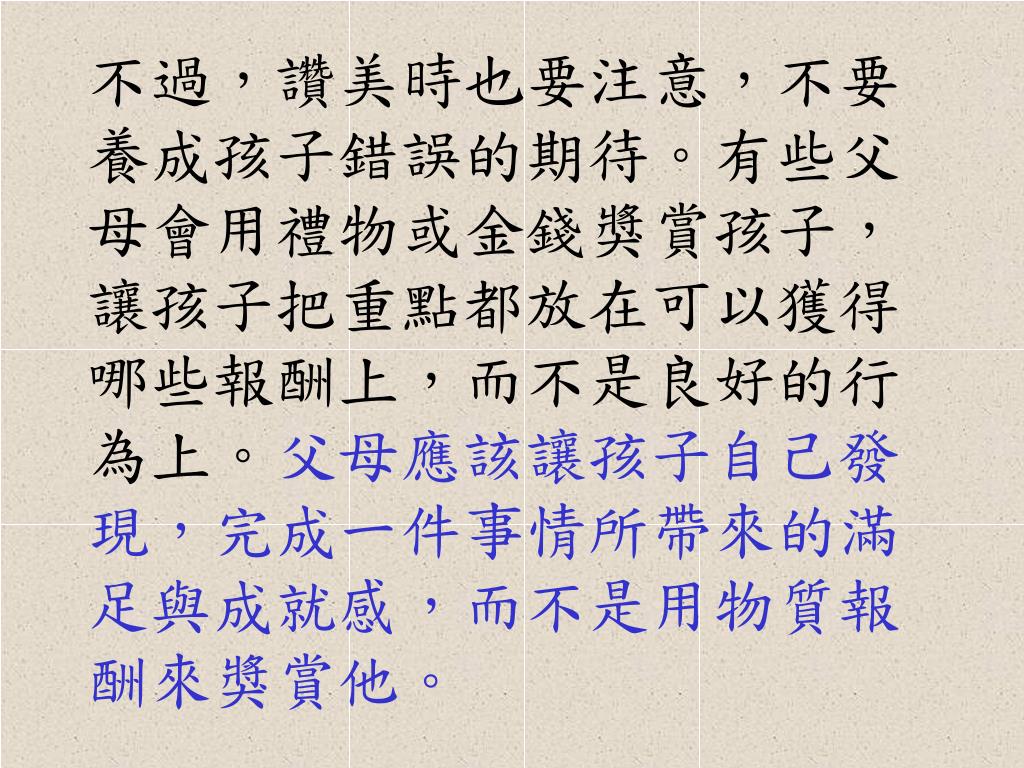 不過，讚美時也要注意，不要
養成孩子錯誤的期待。有些父
母會用禮物或金錢獎賞孩子，
讓孩子把重點都放在可以獲得
哪些報酬上，而不是良好的行
為上。父母應該讓孩子自己發
現，完成一件事情所帶來的滿
足與成就感，而不是用物質報
酬來獎賞他。